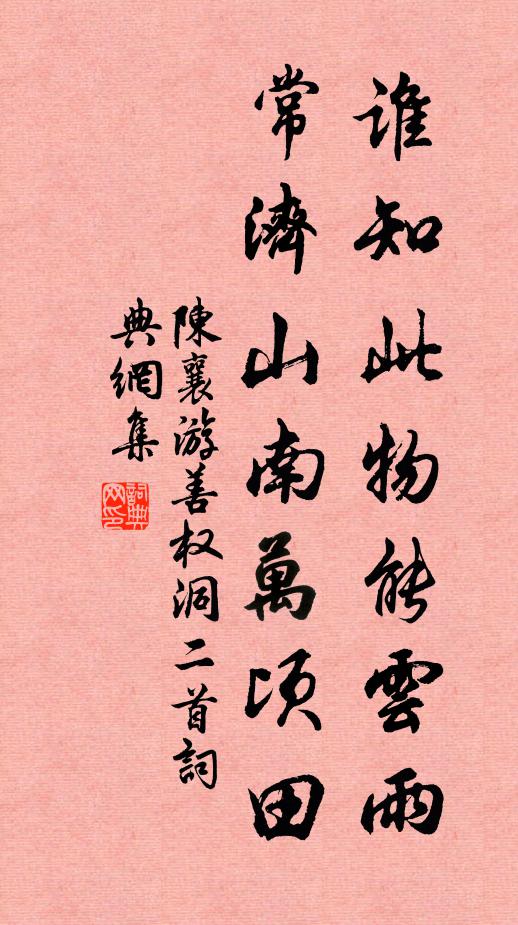 誰知此物能雲雨
常濟山南萬頃田
陳襄游善权洞二首詞
典網集
詞典
网印